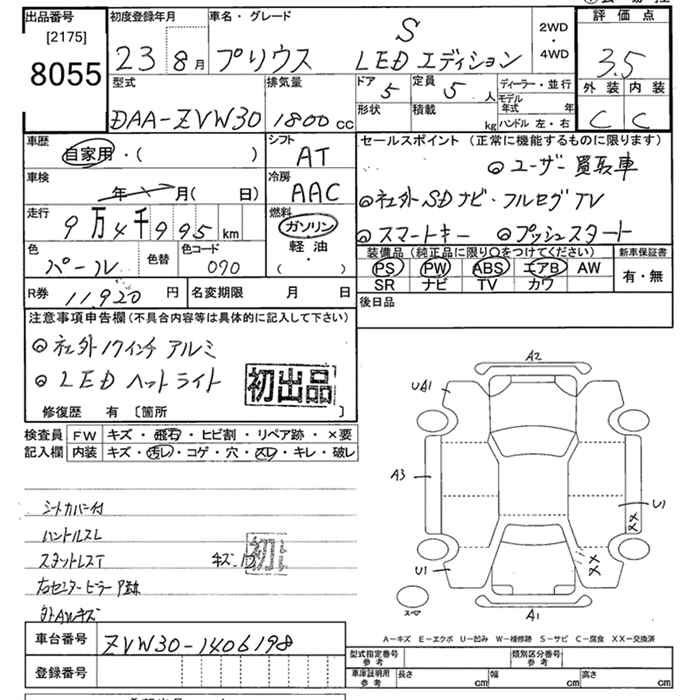 出品番号
[2175]
8055
初度登録年月
23 8月
車名・グレード
プリウス S LEDエディション
2WD
・
4WD
評価点
3.5
外装 内装
C C
型式
DAA-ZVW30
排気量
1800 cc
ドア 5
定員 5 人
形状
積載 kg
ディーラー・並行
モデル年式 年
ハンドル 左・右
車歴
自家用・( )
シフト
AT
車検
年 月( 日)
冷房
AAC
走行
9万4千995km
燃料
ガソリン
軽油
( ・ )
色
パール
色替
色コード
070
R券 11,920 円
名変期限 月 日
セールスポイント (正常に機能するものに限ります)
◎ユーザー買取車
◎社外SDナビ・フルセグTV
◎スマートキー ◎プッシュスタート
装備品 (純正品に限り○をつけてください)
PS PW ABS エアB AW
SR ナビ TV カワ
新車保証書
有・無
後日品
注意事項申告欄 (不具合内容等は具体的に記入して下さい)
◎社外17インチアルミ
◎LEDヘッドライト
初出品
修復歴 有 〔箇所
検査員
記入欄
FW キズ・飛石・ヒビ割・リペア跡・×要
内装 キズ・汚レ・コゲ・穴・スレ・キレ・破レ
シートカバー付
ハンドルスレ
キズ・凹
外AWキズ
A2
UA1
A3
U1
U1
XX
XX
A1
スペア
A-キズ E-エクボ U-凹み W-補修跡 S-サビ C-腐食 XX-交換済
車台番号 ZVW30-1406198
登録番号
型式指定番号
参考
類別区分番号
参考
車庫証明用
参考
長さ cm
幅 cm
高さ cm